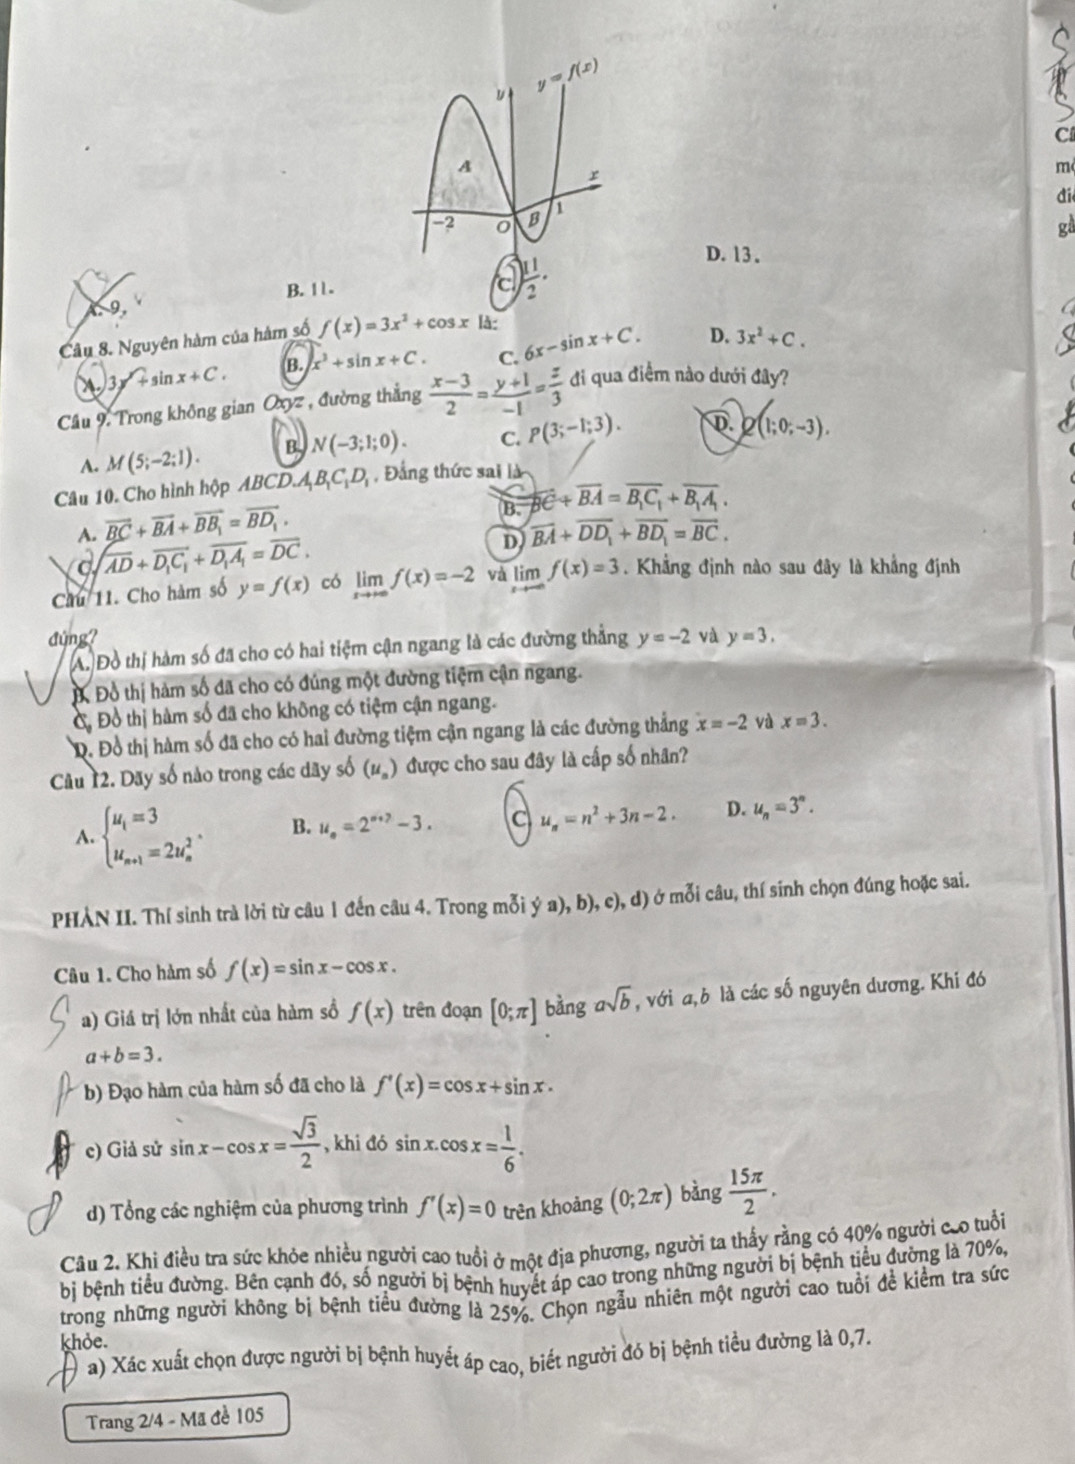 y = f(x)
y
A
x
-2 O B 1
A. 9,
B. 11.
C. \frac{11}{2}.
D. 13.
Câu 8. Nguyên hàm của hàm số f(x)=3x²+cos x là:
A. 3x³+sin x+C. B. x³+sin x+C. C. 6x−sin x+C. D. 3x²+C.
Câu 9. Trong không gian Oxyz, đường thẳng \frac{x-3}{2}=\frac{y+1}{-1}=\frac{z}{3} đi qua điểm nào dưới đây?
A. M(5;−2;1). B. N(−3;1;0). C. P(3;−1;3). D. Q(1;0;−3).
Câu 10. Cho hình hộp ABCD.A₁B₁C₁D₁. Đẳng thức sai là
A. \overline{BC}+\overline{BA}+\overline{BB_1}=\overline{BD_1}. B. \overline{BC}+\overline{BA}=\overline{B_1C_1}+\overline{B_1A_1}.
C. \overline{AD}+\overline{D_1C_1}+\overline{D_1A_1}=\overline{DC}. D. \overline{BA}+\overline{DD_1}+\overline{BD_1}=\overline{BC}.
Câu 11. Cho hàm số y=f(x) có \lim_{x→+∞} f(x)=−2 và \lim_{x→−∞} f(x)=3. Khẳng định nào sau đây là khẳng định
đúng?
A. Đồ thị hàm số đã cho có hai tiệm cận ngang là các đường thẳng y=−2 và y=3.
B. Đồ thị hàm số đã cho có đúng một đường tiệm cận ngang.
C. Đồ thị hàm số đã cho không có tiệm cận ngang.
D. Đồ thị hàm số đã cho có hai đường tiệm cận ngang là các đường thẳng x=−2 và x=3.
Câu 12. Dãy số nào trong các dãy số (uₙ) được cho sau đây là cấp số nhân?
A. \begin{cases}u_1=3\\u_{n+1}=2u_n^2\end{cases}. B. u_n=2^{n+2}−3. C. u_n=n²+3n−2. D. u_n=3^n.
PHẦN II. Thí sinh trả lời từ câu 1 đến câu 4. Trong mỗi ý a), b), c), d) ở mỗi câu, thí sinh chọn đúng hoặc sai.
Câu 1. Cho hàm số f(x)=sin x−cos x.
S a) Giá trị lớn nhất của hàm số f(x) trên đoạn [0;π] bằng a√b, với a,b là các số nguyên dương. Khi đó
a+b=3.
b) Đạo hàm của hàm số đã cho là f'(x)=cos x+sin x.
c) Giả sử sin x−cos x=\frac{√3}{2}, khi đó sin x.cos x=\frac{1}{6}.
d) Tổng các nghiệm của phương trình f'(x)=0 trên khoảng (0;2π) bằng \frac{15π}{2}.
Câu 2. Khi điều tra sức khỏe nhiều người cao tuổi ở một địa phương, người ta thấy rằng có 40% người cao tuổi
bị bệnh tiểu đường. Bên cạnh đó, số người bị bệnh huyết áp cao trong những người bị bệnh tiểu đường là 70%,
trong những người không bị bệnh tiểu đường là 25%. Chọn ngẫu nhiên một người cao tuổi để kiểm tra sức
khỏe.
a) Xác xuất chọn được người bị bệnh huyết áp cao, biết người đó bị bệnh tiểu đường là 0,7.
Trang 2/4 - Mã đề 105